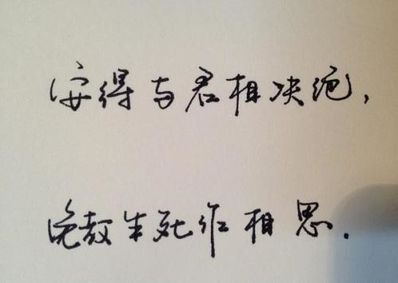 安得与君相决绝,
免教生死作相思.